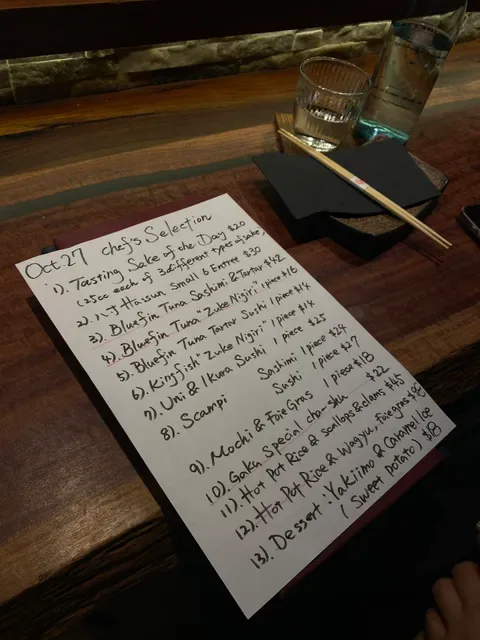 Oct.27 chef's Selection
1). Tasting Sake of the Day $20
(25cc each of 3 different types of sake)
2). 八寸 Hassun Small 6 Entree $30
3). Bluefin Tuna Sashimi & Tartar $42
4). Bluefin Tuna "Zuke Nigiri" 1 piece $16
5). Bluefin Tuna Tartar Sushi 1 piece $14
6). Kingfish "Zuke Nigiri" 1 piece $14
7). Uni & Ikura Sushi 1 piece $25
8). Scampi Sashimi 1 piece $24
Sushi 1 piece $27
9). Mochi & Foie Gras 1 piece $18
10). Gaku Special cha-shu $22
11). Hot Pot Rice & scallops & clams $45
12). Hot Pot Rice & Wagyu, Foie gras
13). Dessert: Yakiimo & Caramel Ice
(Sweet potato) $18